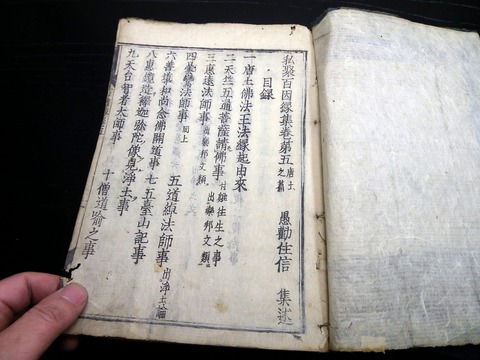 私聚百因縁集巻第五 唐土之篇 愚勸住信 集述
目録
一唐土佛法王法縁起由來
二天竺五通菩薩請佛事 付雞往生之事
三惠遠法師事 出樂邦文類
四曇鸞法師事 同上 五道綽法師事 出浄土論
六善導和尚念佛開道事 七五臺山記事
九天台智者大師事 十僧道喻之事